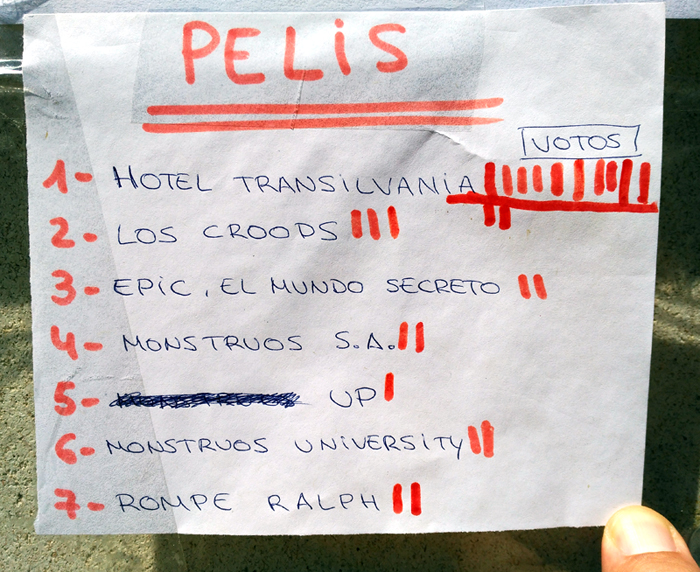 PELiS
VOTOS
1- HOTEL TRANSiLVANiA
2- LOS CROODS
3- EPiC, EL MUNDO SECRETO
4- MONSTRUOS S.A.
5- UP
6- MONSTRUOS UNiVERSiTY
7- ROMPE RALPH